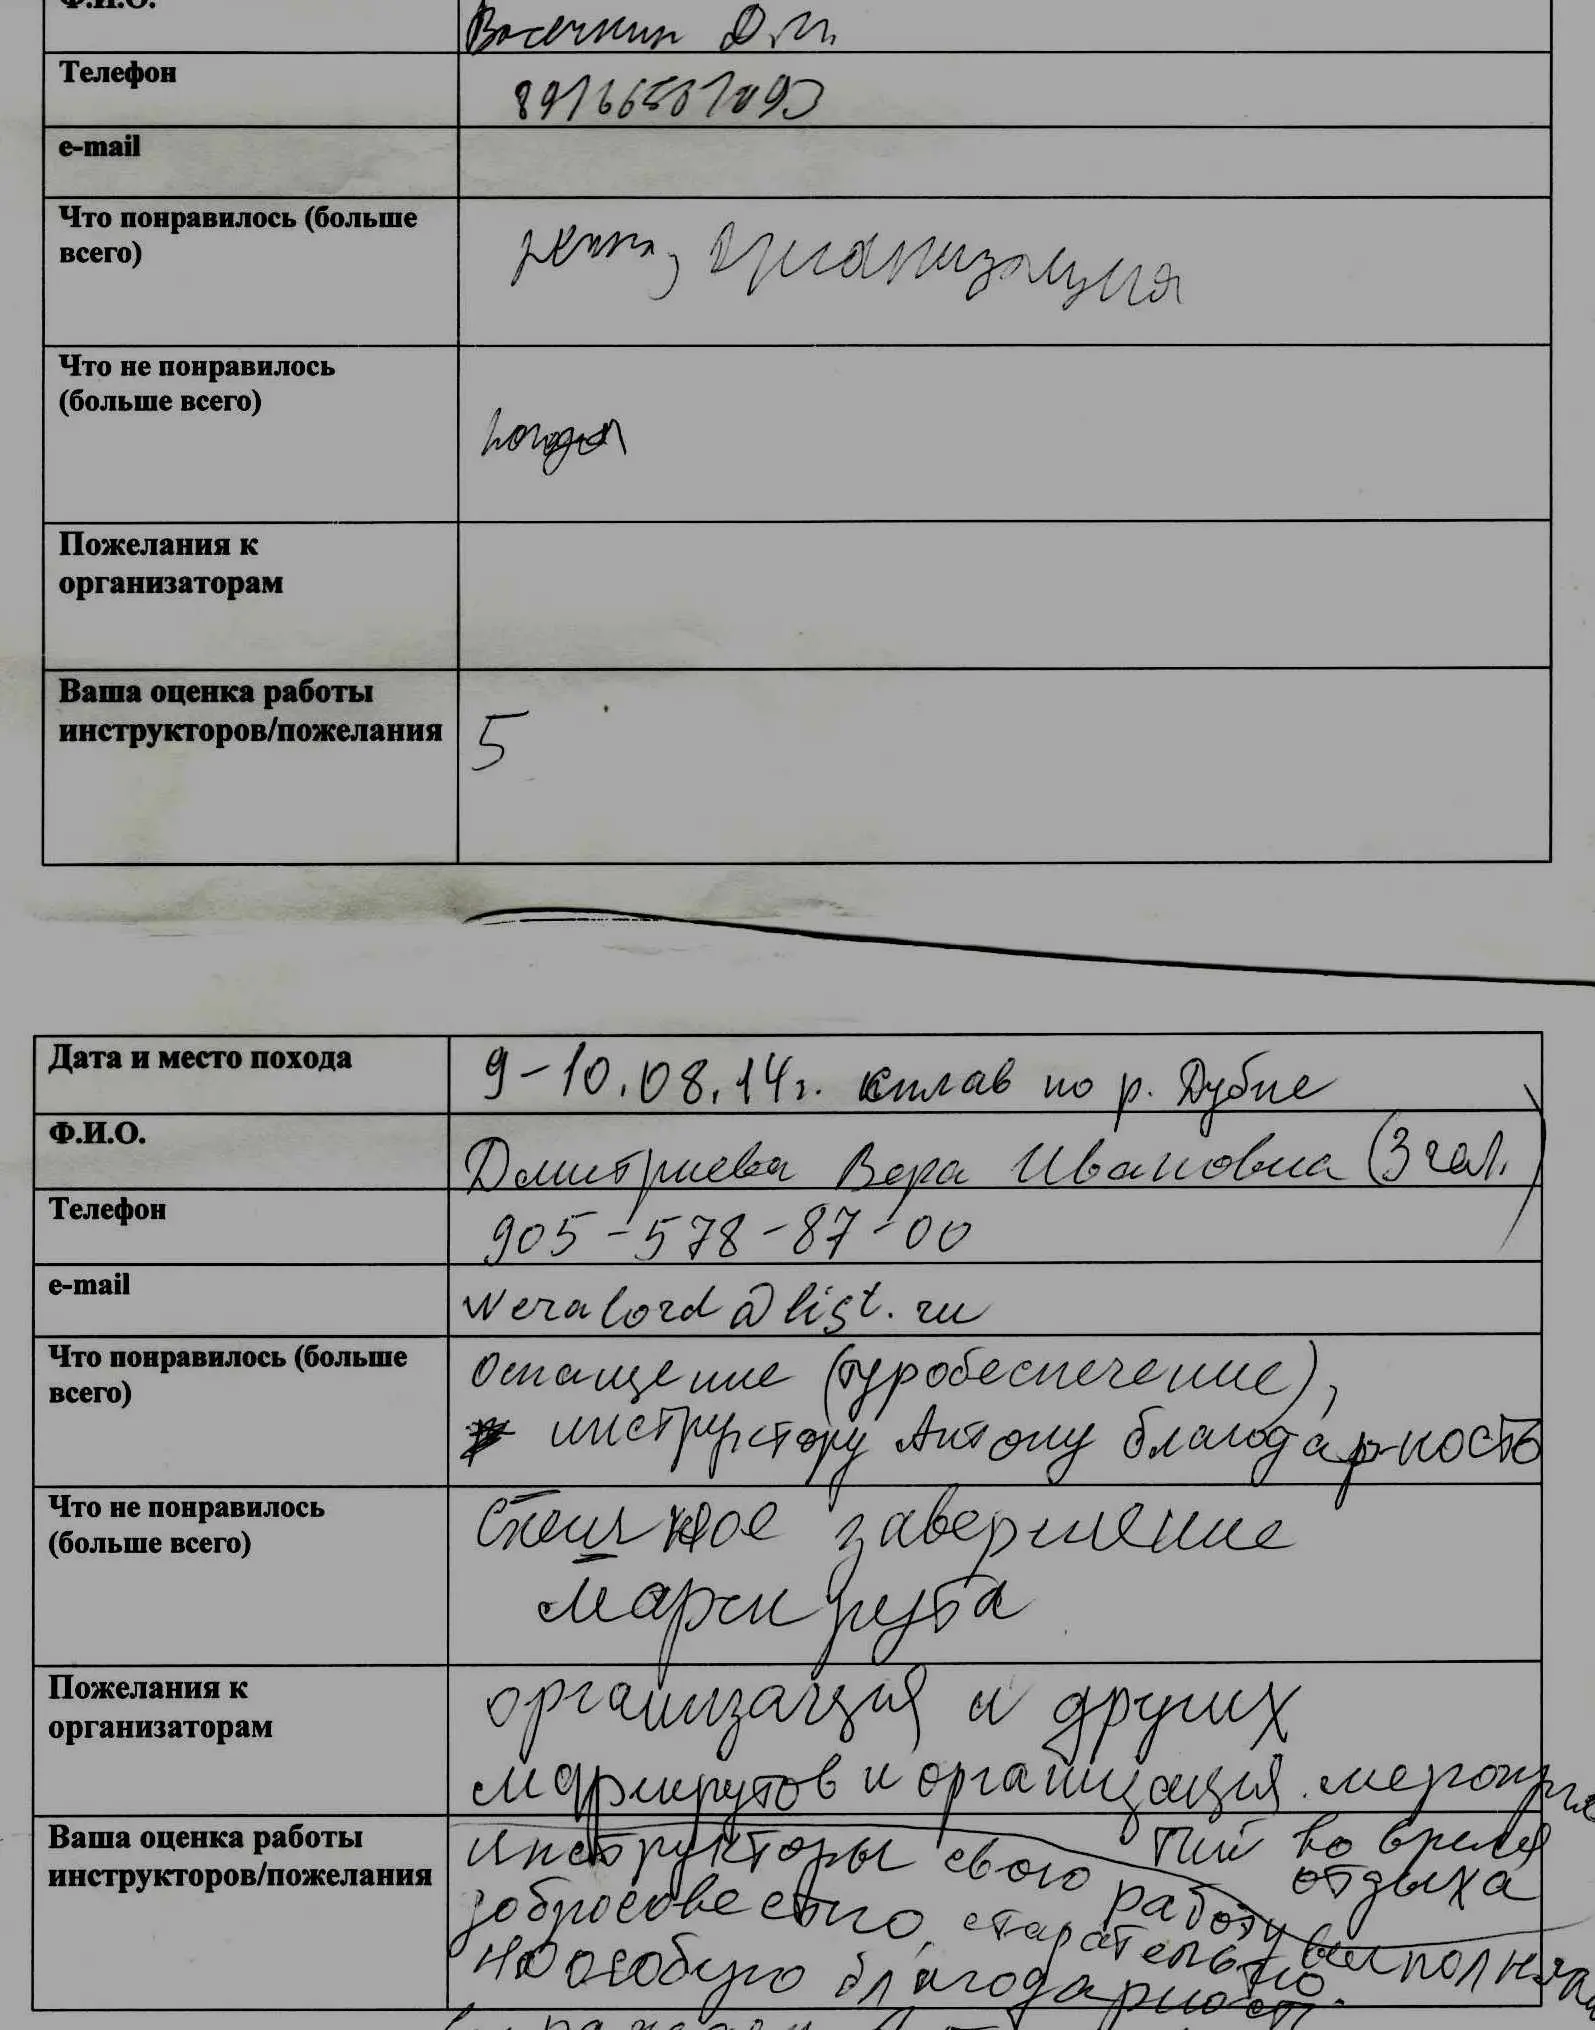 Ф.И.О.
Васечкин Д.М.
Телефон
e-mail
Что понравилось (больше
всего)
организация
Что не понравилось
(больше всего)
погода
Пожелания к
организаторам
Ваша оценка работы
инструкторов/пожелания
5
Дата и место похода
9-10.08.14г. сплав по р. Дубне
Ф.И.О.
Дмитриева Вера Ивановна (3 чел.)
Телефон
905-578-87-00
e-mail
weralord@list.ru
Что понравилось (больше
всего)
Оснащение (туробеспечение),
инструктору Антону благодарность
Что не понравилось
(больше всего)
Спешное завершение
маршрута
Пожелания к
организаторам
организация и других
маршрутов и организация мероприя
тий во время
отдыха
Ваша оценка работы
инструкторов/пожелания
Инструкторы свою работу выполняли
добросовестно, старательно.
Но особую благодарность